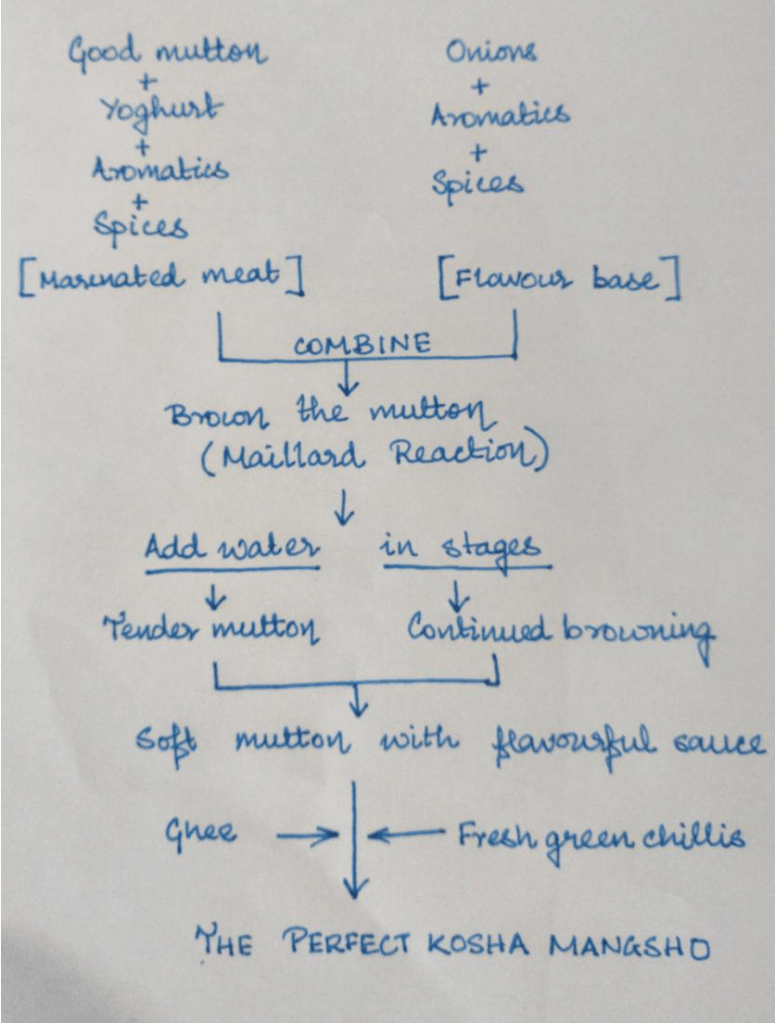 Good mutton
+
Yoghurt
+
Aromatics
+
Spices
[Marinated meat]
Onions
+
Aromatics
+
Spices
[Flavour base]
COMBINE
Brown the mutton
(Maillard Reaction)
Add water in stages
Tender mutton
Continued browning
Soft mutton with flavourful sauce
Ghee
Fresh green chillis
THE PERFECT KOSHA MANGSHO